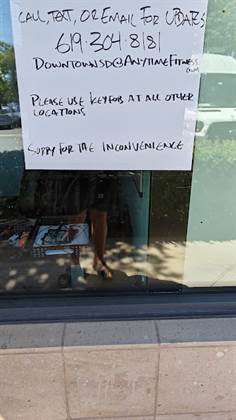 CALL, TEXT, OR EMAIL FOR UPDATES
619.304.8181
DOWNTOWNSD@ANYTIMEFITNESS
.COM
PLEASE USE KEYFOBS AT ALL OTHER
LOCATIONS
SORRY FOR THE INCONVENIENCE